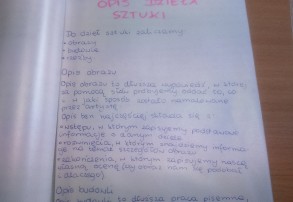 OPIS DZIEŁA
SZTUKI
Do dzieł sztuki zaliczamy:
• obrazy
• budowle
• rzeźby
Opis obrazu
Opis obrazu to dłuższa wypowiedź, w której
za pomocą słów
w jaki sposób został namalowany
przez artystę.
Opis ten najczęściej składa się z:
• wstępu, w którym zapisujemy podstawowe
informacje o danym dziele
• rozwinięcia, w którym znajdziemy informa-
cje na temat szczegółów obrazu
• zakończenia, w którym zapisujemy naszą
własną ocenę (czy obraz nam się podoba i
dlaczego)
Opis budowli
Opis budowli to dłuższa praca pisemna,